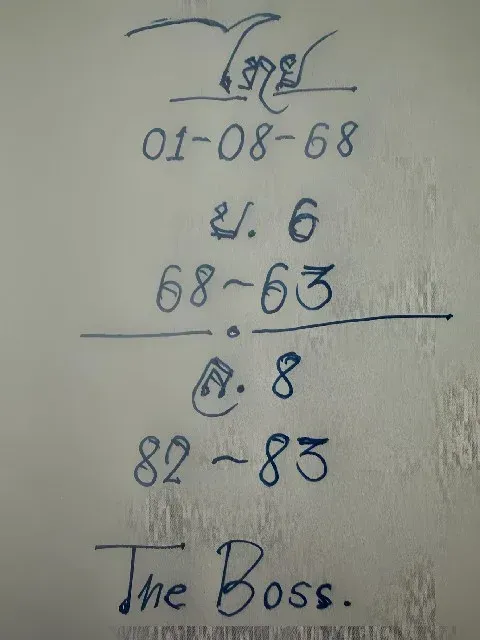 ไทย
01-08-68
บ. 6
68~63
ล. 8
82~83
The Boss.